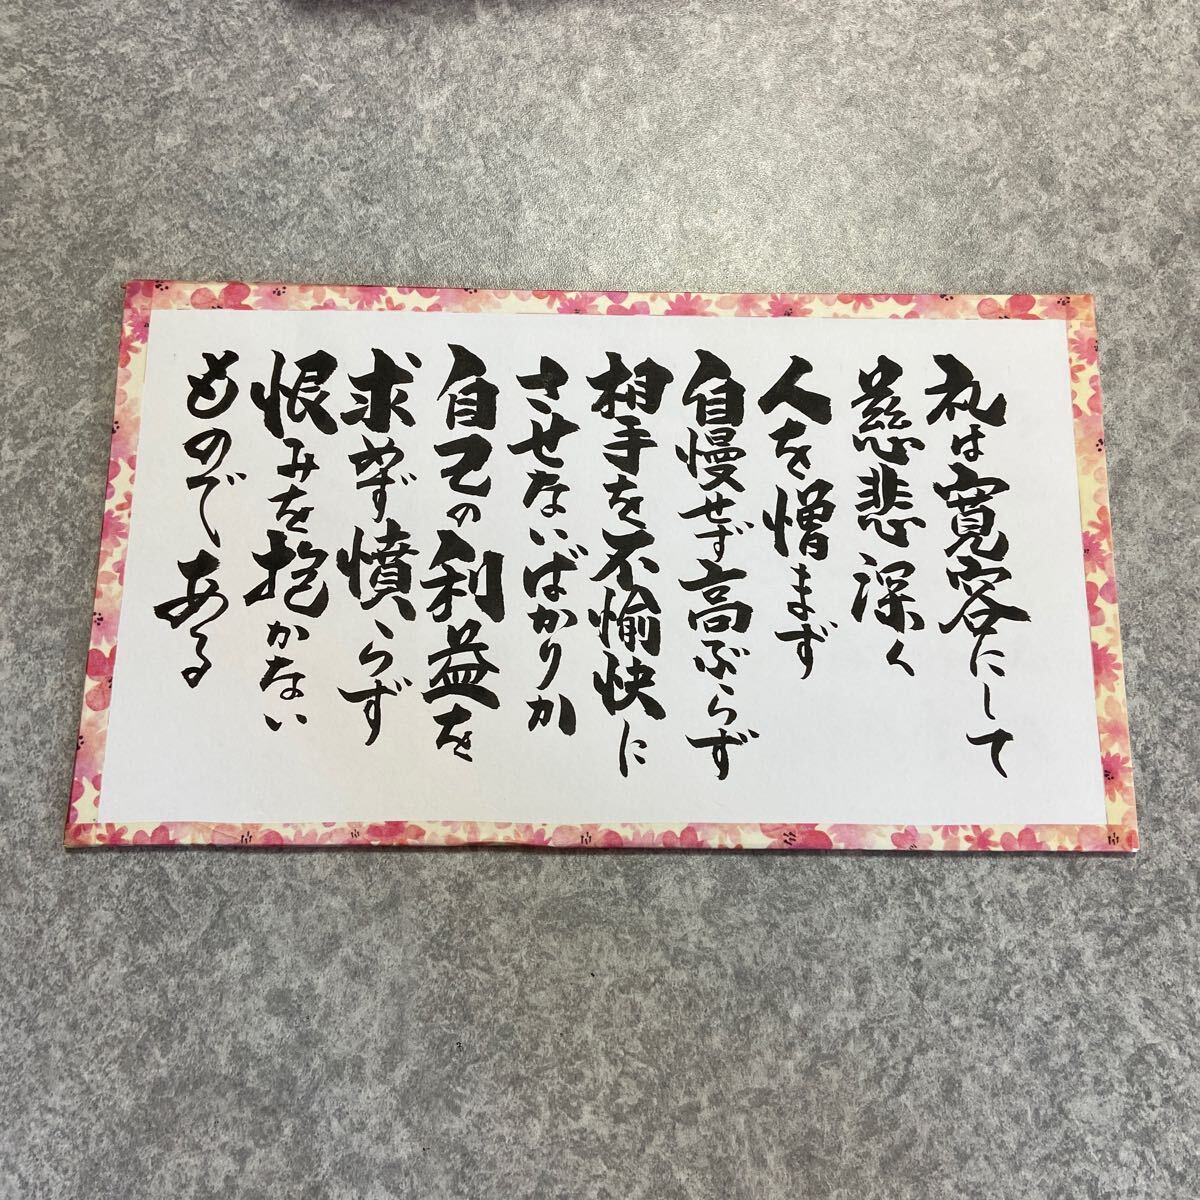 礼は寛容にして
慈悲深く
人を憎まず
自慢せず高ぶらず
相手を不愉快に
させないばかりか
自己の利益を
求めず憤らず
恨みを抱かない
ものである